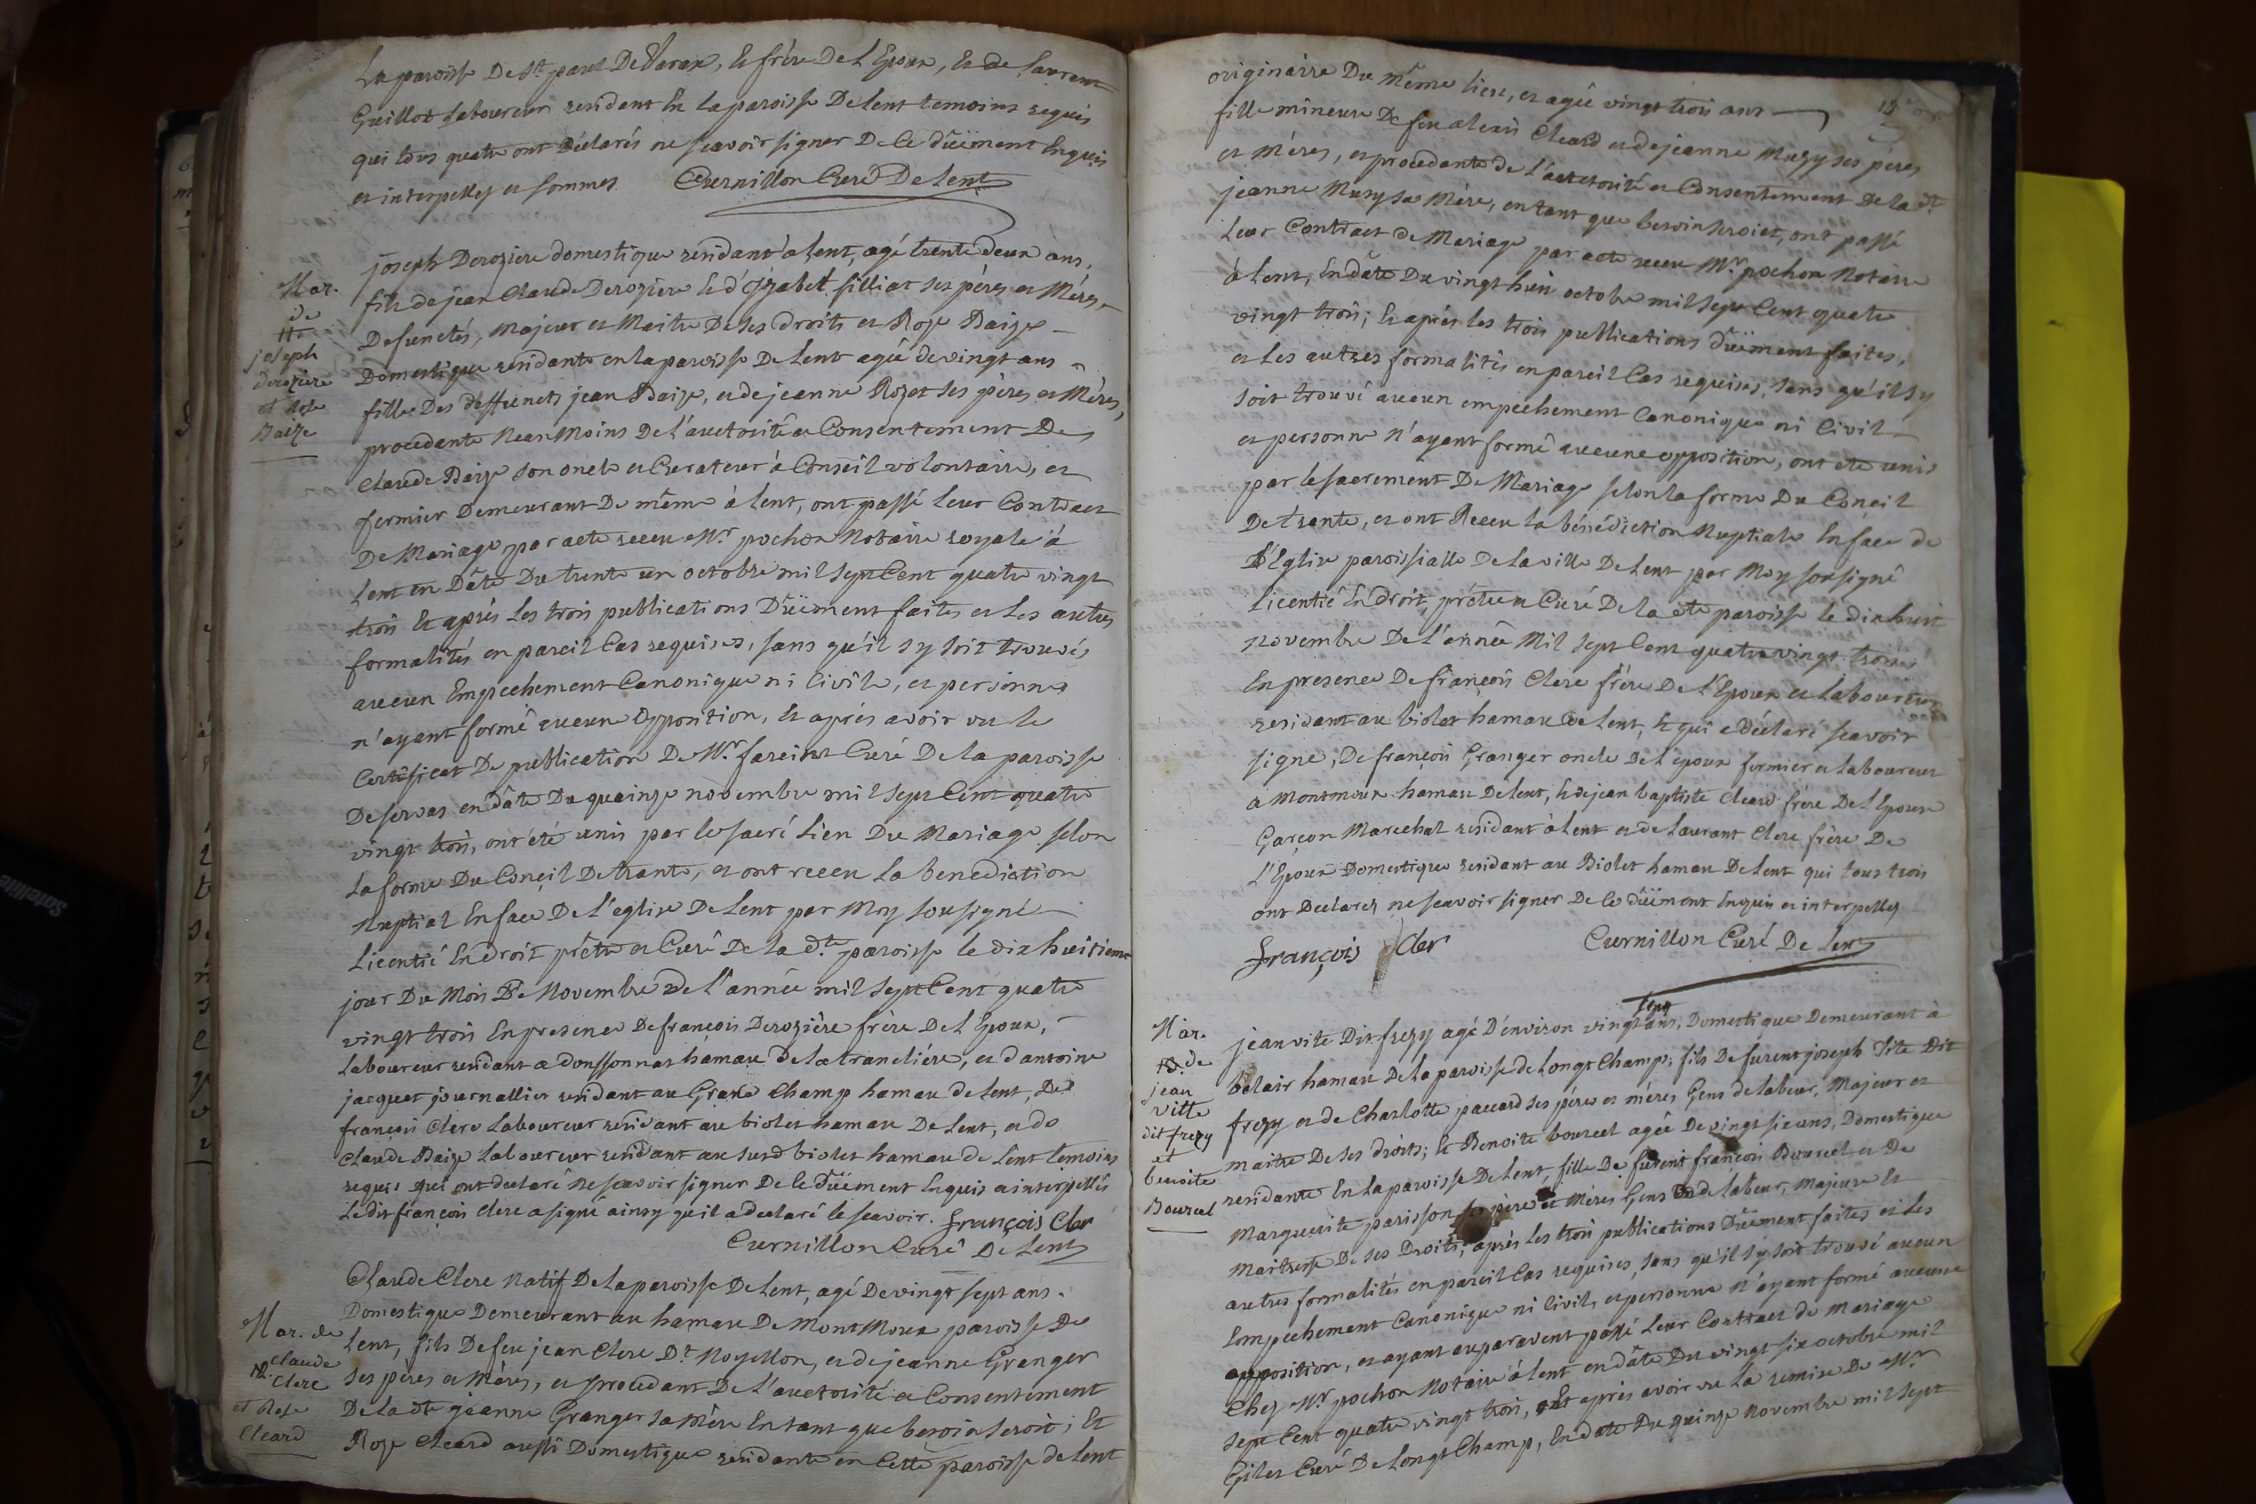 La paroisse De St paul De Varax, et frère De L'Epoux, et de Laurent
Guillot Laboureur residant En La paroisse De Lent temoins requis
qui tous quatre ont Déclarés ne scavoir signer De Ce Düement Enquis
et interpellez et sommez. Curnillon Curé De Lent
Mar.
de
joseph
derozière
et Rose
Baize
joseph Derozière domestique residant à Lent, agé trente deux ans,
fils de jean Claude Derozière Et d'izabet silliat ses pères et Mères,
Defunctés, Majeur et Maitre De ses droits et Roze Baize
Domestique residante en la paroisse De Lent agée de vingt ans
fille Des deffuncts jean Baize, et de jeanne Rozet ses pères et Mères,
procedante Nean Moins De l'auctorité et Consentement De
Claude Baize son oncle et Curateur à Conseil volontaire, et
fermier Demeurant De même à Lent, ont passé leur Contract
De Mariage par acte receu Mr. pochon Notaire royale à
Lent en Dâte Du trente un octobre mil sept Cent quatre vingt
trois Et après Les trois publications Düement faites et Les autres
formalités en pareil Cas requises, sans qu'il sy soit trouvés
aucun Empechement Canonique ni Civile, et personne
n'ayant formé aucune opposition, Et après avoir vu le
Certificat De publication De Mr. fareint Curé De La paroisse
De servas en dâte Du quainze novembre mil sept Cent quatre
vingt trois, ont été unis par le sacré Lien Du Mariage selon
La forme Du Conçil De trante, et ont receu La benediction
Nuptial En face De L'eglise De Lent par Moy sousigné
Licentié En droit prêtre et Curé De La dte. paroisse le dix huitieme
jour Du Mois De Novembre De L'année mil sept Cent quatre
vingt trois En presence De francois Derozière frère De L'Epoux,
Laboureur residant a donssonnas hamau De la tranclière, et d'antoine
jacquet journallier residant au Grand Champ hamau de Lent, De
francois Clerc Laboureur residant au biolet hamau De Lent, et de
Claude Baize Laboureur residant au susd biolet hamau de Lent temoins
requis qui ont declaré Ne scavoir signer De Ce Düement Enquis et interpellés
Le dit françois Clerc a signé ainsy qu'il a declaré le scavoir. françois Cler
Curnillon Curé De Lent
Mar. de
Claude
Clerc
et Rose
Cleard
Claude Clerc Natif De La paroisse De Lent, agé De vingt sept ans.
Domestique Demeurant au hamau De Mont Moux paroisse De
Lent, fils De feu jean Clerc Dt. Noyellon, et de jeanne Granger
ses pères et Mères, et procedant De L'auctorité et Consentement
De La dte jeanne Granger sa Mère En tant que besoin seroit; Et
Roze Cleard aussi Domestique residante en Cette paroisse de Lent
originaire Du même Lieu, et agée vingt trois ans
fille mineure De feu alexis Cleard et de jeanne Muzy ses pères
et Mères, et procedante de L'auctorité et Consentement De La dte
jeanne Muzy sa Mère, en tant que besoin seroit, ont passé
Leur Contract de Mariage par acte receu Mr. pochon Notaire
à Lent, En dâte Du vingt huit octobre mil sept Cent quatre
vingt trois; Et après Les trois publications Düement faites,
et Les autres formalités en pareil Cas requises, sans qu'il sy
soit trouvé aucun empechement Canonique ni Civil
et personne N'ayant formé aucune opposition, ont été unis
par le sacrement De Mariage selon la forme Du Conçil
De trante, et ont Receu La bénédiction Nuptiale En face de
L'Eglise paroissialle De La ville De Lent par Moy sousigné
Licentié En droit, prêtre et Curé De La dte paroisse le dix huit
novembre De L'année Mil sept Cent quatre vingt trois
En presence De françois Clerc frère De L'Epoux et Laboureur
residant au biolet hamau De Lent, Et qui a déclaré scavoir
signé; De françois Granger oncle De L'epoux fermier et Laboureur
a Montmoux hamau De Lent, Et de jean baptiste Cleard frère De L'Epouse
Garçon Marechal residant à Lent et de Laurant Clerc frère De
L'Epoux Domestique residant au Biolet hamau De Lent qui tous trois
ont Declarez ne scavoir signer De Ce düement Enquis et interpellez
françois Cler Curnillon Curé De Lent
Mar.
de
jean
vitte
dit frezy
et
benoite
Bourcel
jean vite Dit frezy agé D'environ vingt sept ans, Domestique Demeurant à
belair hamau De La paroisse de Longt Champ, fils De furent joseph Vite Dit
frezy et de Charlotte paccard ses pères et mères Gens de labeur, Majeur et
maitre De ses droits; Et Benoite bourcel agée De vingt six ans, Domestique
residante En La paroisse De Lent, fille De furent françois Bourcel et De
Marguerite parisson ses père et Mères Gens de labeur, Majeure Et
Maitresse De ses Droits; après Les trois publications Düement faites et Les
autres formalités en pareil Cas requises, sans qu'il sy soit trouvé aucun
Empechement Canonique ni Civil, et personne n'ayant formé aucune
opposition, et ayant auparavent passé Leur Contract de Mariage
Chez Mr. pochon Notaire à Lent en dâte Du vingt six octobre mil
sept Cent quatre vingt trois, Et après avoir vu La remise De Mr.
Gilet Curé De Longt Champ, En date Du quinze Novembre mil sept